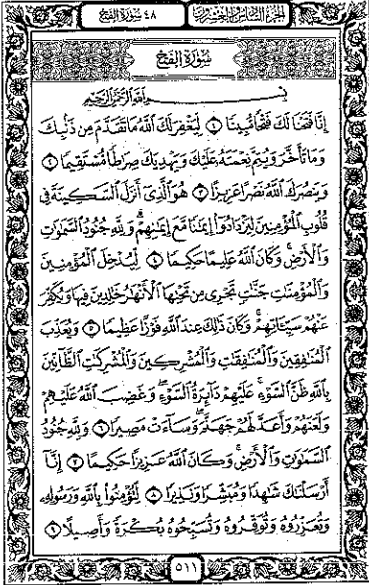 الجزء السادس والعشرون
٤٨ سورة الفتح
سُورَةُ الفَتْحِ
بِسْمِ اللَّهِ الرَّحْمَنِ الرَّحِيمِ
إِنَّا فَتَحْنَا لَكَ فَتْحًا مُّبِينًا ١ لِّيَغْفِرَ لَكَ ٱللَّهُ مَا تَقَدَّمَ مِن ذَنۢبِكَ
وَمَا تَأَخَّرَ وَيُتِمَّ نِعْمَتَهُۥ عَلَيْكَ وَيَهْدِيَكَ صِرَٰطًا مُّسْتَقِيمًا ٢
وَيَنصُرَكَ ٱللَّهُ نَصْرًا عَزِيزًا ٣ هُوَ ٱلَّذِىٓ أَنزَلَ ٱلسَّكِينَةَ فِى
قُلُوبِ ٱلْمُؤْمِنِينَ لِيَزْدَادُوٓا۟ إِيمَٰنًا مَّعَ إِيمَٰنِهِمْ ۗ وَلِلَّهِ جُنُودُ ٱلسَّمَٰوَٰتِ
وَٱلْأَرْضِ ۚ وَكَانَ ٱللَّهُ عَلِيمًا حَكِيمًا ٤ لِّيُدْخِلَ ٱلْمُؤْمِنِينَ
وَٱلْمُؤْمِنَٰتِ جَنَّٰتٍ تَجْرِى مِن تَحْتِهَا ٱلْأَنْهَٰرُ خَٰلِدِينَ فِيهَا وَيُكَفِّرَ
عَنْهُمْ سَيِّـَٔاتِهِمْ ۚ وَكَانَ ذَٰلِكَ عِندَ ٱللَّهِ فَوْزًا عَظِيمًا ٥ وَيُعَذِّبَ
ٱلْمُنَٰفِقِينَ وَٱلْمُنَٰفِقَٰتِ وَٱلْمُشْرِكِينَ وَٱلْمُشْرِكَٰتِ ٱلظَّآنِّينَ
بِٱللَّهِ ظَنَّ ٱلسَّوْءِ ۚ عَلَيْهِمْ دَآئِرَةُ ٱلسَّوْءِ ۖ وَغَضِبَ ٱللَّهُ عَلَيْهِمْ
وَلَعَنَهُمْ وَأَعَدَّ لَهُمْ جَهَنَّمَ ۖ وَسَآءَتْ مَصِيرًا ٦ وَلِلَّهِ جُنُودُ
ٱلسَّمَٰوَٰتِ وَٱلْأَرْضِ ۚ وَكَانَ ٱللَّهُ عَزِيزًا حَكِيمًا ٧ إِنَّآ
أَرْسَلْنَٰكَ شَٰهِدًا وَمُبَشِّرًا وَنَذِيرًا ٨ لِّتُؤْمِنُوا۟ بِٱللَّهِ وَرَسُولِهِۦ
وَتُعَزِّرُوهُ وَتُوَقِّرُوهُ وَتُسَبِّحُوهُ بُكْرَةً وَأَصِيلًا ٩
٥١١